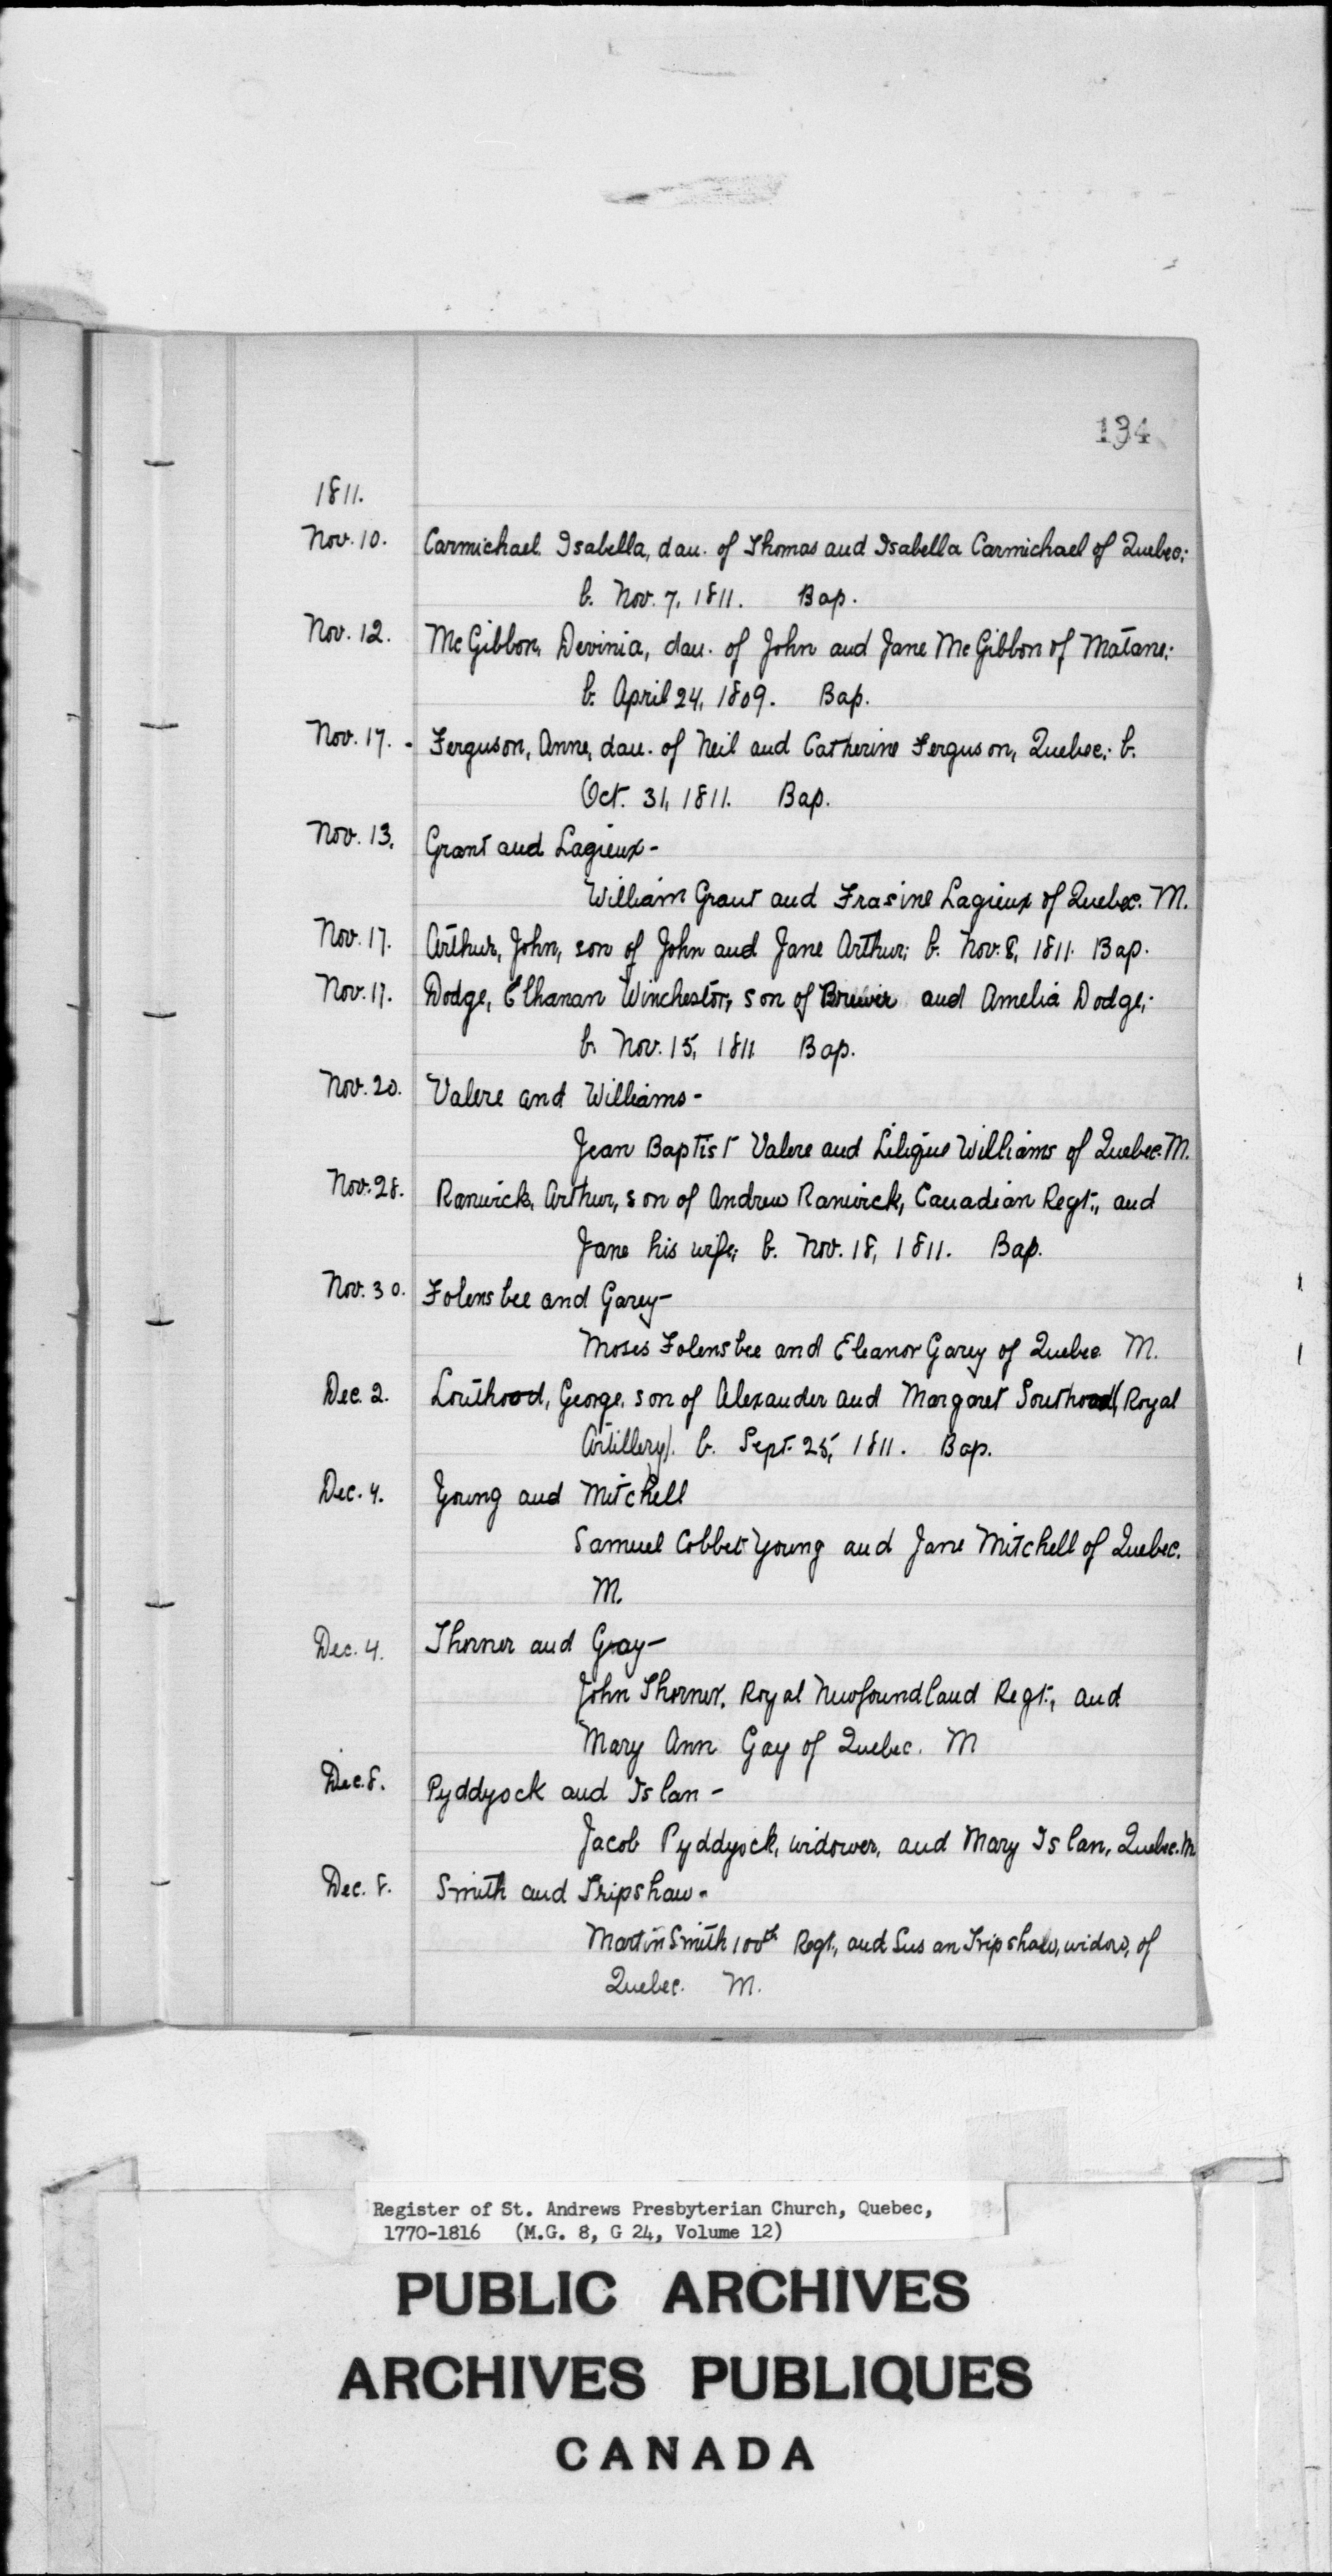 134
1811.
Nov. 10. Carmichael Isabella, dau. of Thomas and Isabella Carmichael of Quebec;
b. Nov. 7, 1811. Bap.
Nov. 12. McGibbon, Devinia, dau. of John and Jane McGibbon of Matane;
b. April 24, 1809. Bap.
Nov. 17. - Ferguson, Anne, dau. of Neil and Catherine Ferguson, Quebec; b.
Oct. 31, 1811. Bap.
Nov. 13. Grant and Lagieux -
William Grant and Frasine Lagieux of Quebec. M.
Nov. 17. Arthur, John, son of John and Jane Arthur; b. Nov. 8, 1811. Bap.
Nov. 17. Dodge, Elhanan Winchester, son of Brewer and Amelia Dodge;
b. Nov. 15, 1811 Bap.
Nov. 20. Valere and Williams -
Jean Baptist Valere and Williams of Quebec. M.
Nov. 28. Ranwick, Arthur, son of Andrew Ranwick, Canadian Regt., and
Jane his wife; b. Nov. 18, 1811. Bap.
Nov. 30. Folensbee and Garey -
Moses Folensbee and Eleanor Garey of Quebec M.
Dec. 2. Louthood, George, son of Alexander and Margaret Southood (Royal
Artillery). b. Sept. 25, 1811. Bap.
Dec. 4. Young and Mitchell
Samuel Cobbet Young and Jane Mitchell of Quebec.
M.
Dec. 4. Thorner and Gray -
John Thorner, Royal Newfoundland Regt., and
Mary Ann Gay of Quebec. M
Dec. 8. Pyddyock and Islan -
Jacob Pyddyock, widower, and Mary Islan, Quebec. M
Dec. 8. Smith and Tripshaw -
Martin Smith 100th Regt., and Susan Tripshaw, widow, of
Quebec. M.
Register of St. Andrews Presbyterian Church, Quebec,
1770-1816 (M.G. 8, G 24, Volume 12)
PUBLIC ARCHIVES
ARCHIVES PUBLIQUES
CANADA